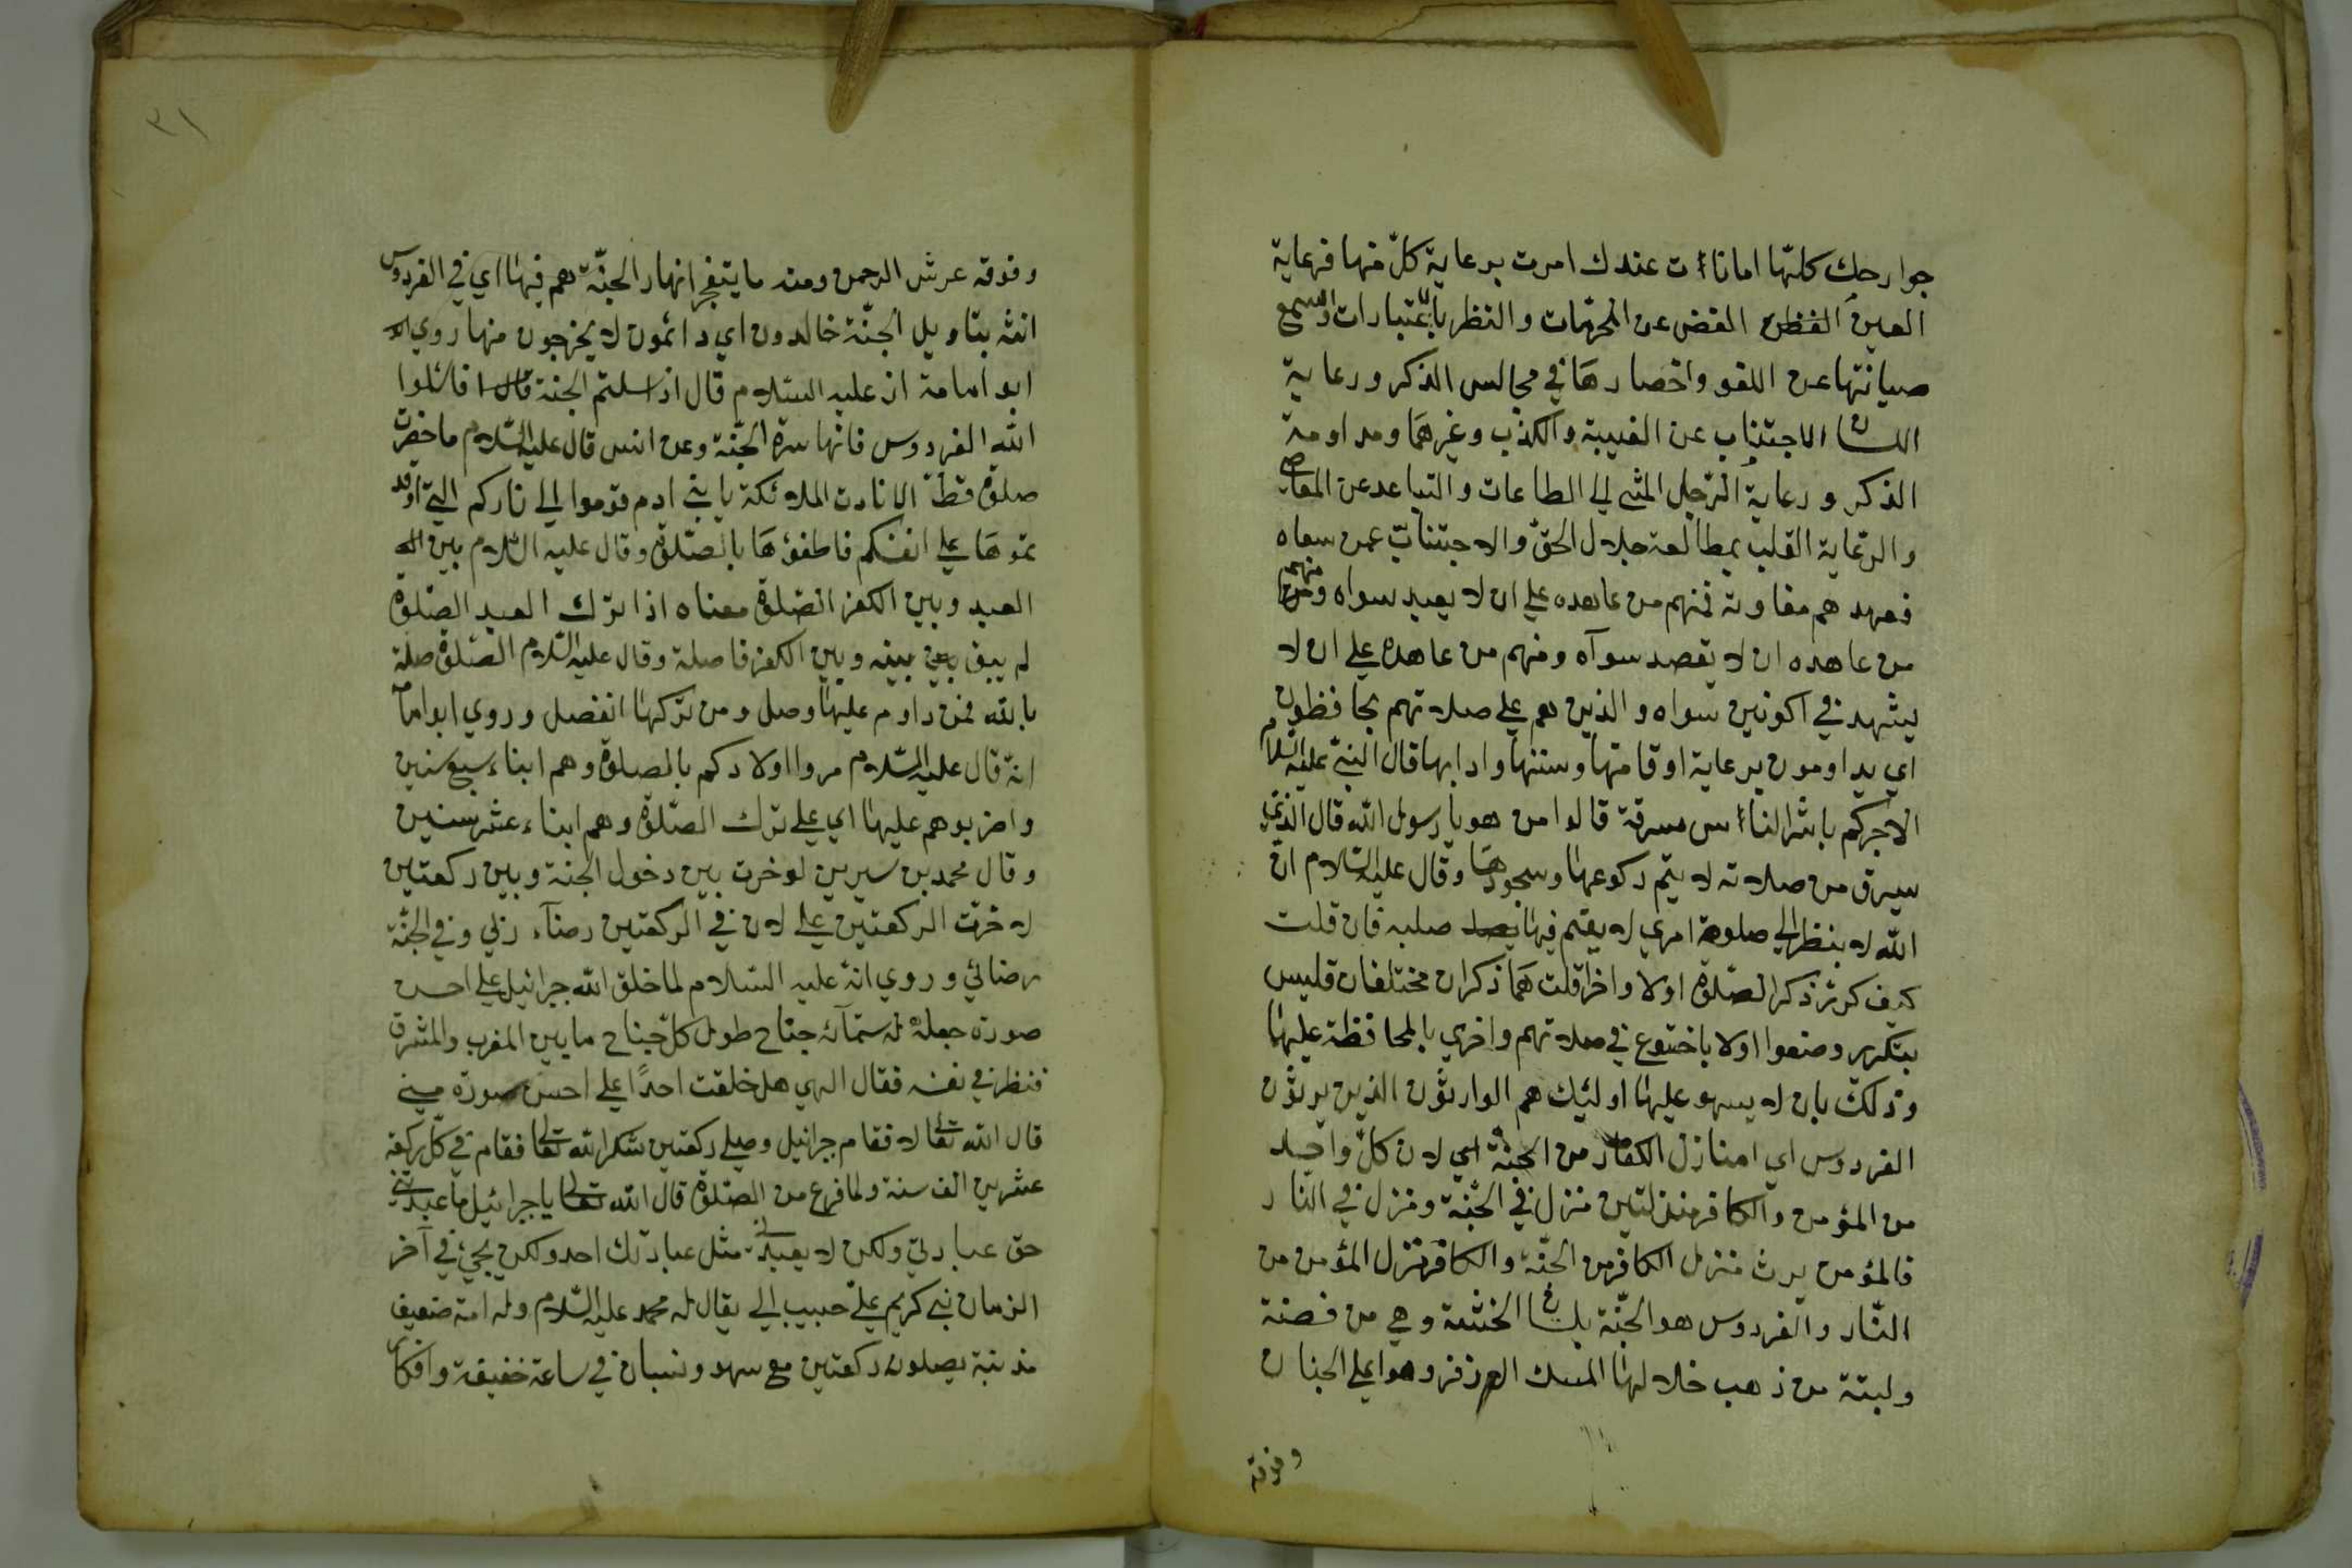 جوارحك كلتها امانات عندك امرت برعاية كلّ منها فرعاية
العين الغض عن المحرمات والنظر بالاعتبارات والسمع
صيانتها عن اللغو واحضارها في مجالس الذكر ورعاية
اللسان الاجتناب عن الغيبة والكذب وغيرهما ومداومة
الذكر ورعاية الرّجل المشي الي الطاعات والتباعد عن المعاصي
والرّعاية القلب بمطالعة جلال الحقّ والاجتناب عمن سواه
فعهدهم مفاوته فمنهم من عاهده علي ان لا يعبد سواه ومنهم
من عاهده ان لا يقصد سوآه ومنهم من عاهده علي ان لا
يشهد في اكونين سواه والذين هم علي صلاتهم يحافظون
اي يداومون برعاية اوقاتها وسننها وادابها قال النبيّ عليه السّلام
الا اخبركم باشر الناس سرقة قالوا من هو يا رسول الله قال الذي
يسرق من صلاته لا يتم ركوعها وسجودها وقال عليه السّلام انّ
الله لا ينظر الي صلوة امرئ لا يقيم فيها صلبه فان قلت
كيف كرّر ذكر الصّلوة اولا واخرا قلت هما ذكران مختلفان فليس
بتكرير وصفوا اولا باختوع في صلاتهم واخري بالمحافظة عليها
وذلك بان لا يسهو عليها اولئك هم الوارثون الذين يرثون
الفردوس اي امنازل الكفار من الجنّة اي لان كلّ واحد
من المؤمن والكافر منزلتين منزل في الجنّة ومنزل في النار
فالمؤمن يرث منزل الكافر من الجنّة والكافر منزل المؤمن من
النّار والفردوس هو الجنّة بلسان الحبشة وهي من فضة
ولبنة من ذهب خلالها المسك الاذفر وهو اعلي الجنان
وفوقه
٣١
وفوقه عرش الرحمن ومنه ما يتفجر انهار الجنّة هم فيها اي في الفردوس
انثه بتاويل الجنّة خالدون اي دائمون لا يخرجون منها روي
ابو امامة انه عليه السّلام قال اذا سلتم الجنة فاسئلوا
الله الفردوس فانها سرة الجنّة وعن انس قال عليه السّلام ما حضرت
صلوة قطّ الا نادت الملائكة يا بني ادم قوموا الي ناركم التي اوقد
تموها علي انفسكم فاطفؤها بالصّلوة وقال عليه السّلام بين
العبد وبين الكفر الصّلوة معناه اذا ترك العبد الصّلوة
لم يبق بينه وبين الكفر فاصلة وقال عليه السّلام الصّلوة صلة
بالله فمن داوم عليها وصل ومن تركها انفصل وروي ابو امامة
انه قال عليه السّلام مروا اولادكم بالصلوة وهم ابناء سبع سنين
واضربوهم عليها اي علي ترك الصّلوة وهم ابناء عشر سنين
وقال محمد بن سيرين لو خيرت بين دخول الجنة وبين ركعتين
لاخترت الركعتين علي لان في الركعتين رضآء ربّي وفي الجنّة
رضائي وروي انه عليه السّلام لما خلق الله جبرائيل علي احسن
صورة جعله له ستمآئة جناح طول كلّ جناح ما بين المغرب والمشرق
فنظر في نفسه فقال الهي هل خلقت احدًا علي احسن صورة مني
قال الله تعالي لا فقام جبرائيل وصلي ركعتين شكرا لله تعالي فقام في كلّ ركعة
عشرين الف سنة ولما فرغ من الصّلوة قال الله تعالي يا جبرائيل ما عبدتني
حق عبادتي ولكن لا يعبدني مثل عبادتك احد ولكن يجئ في آخر
الزمان نبي كريم عليّ حبيب الي يقال له محمد عليه السّلام وله امة ضعيف
مذنبة يصلون ركعتين مع سهو ونسيان في ساعة خفيفة وافكار